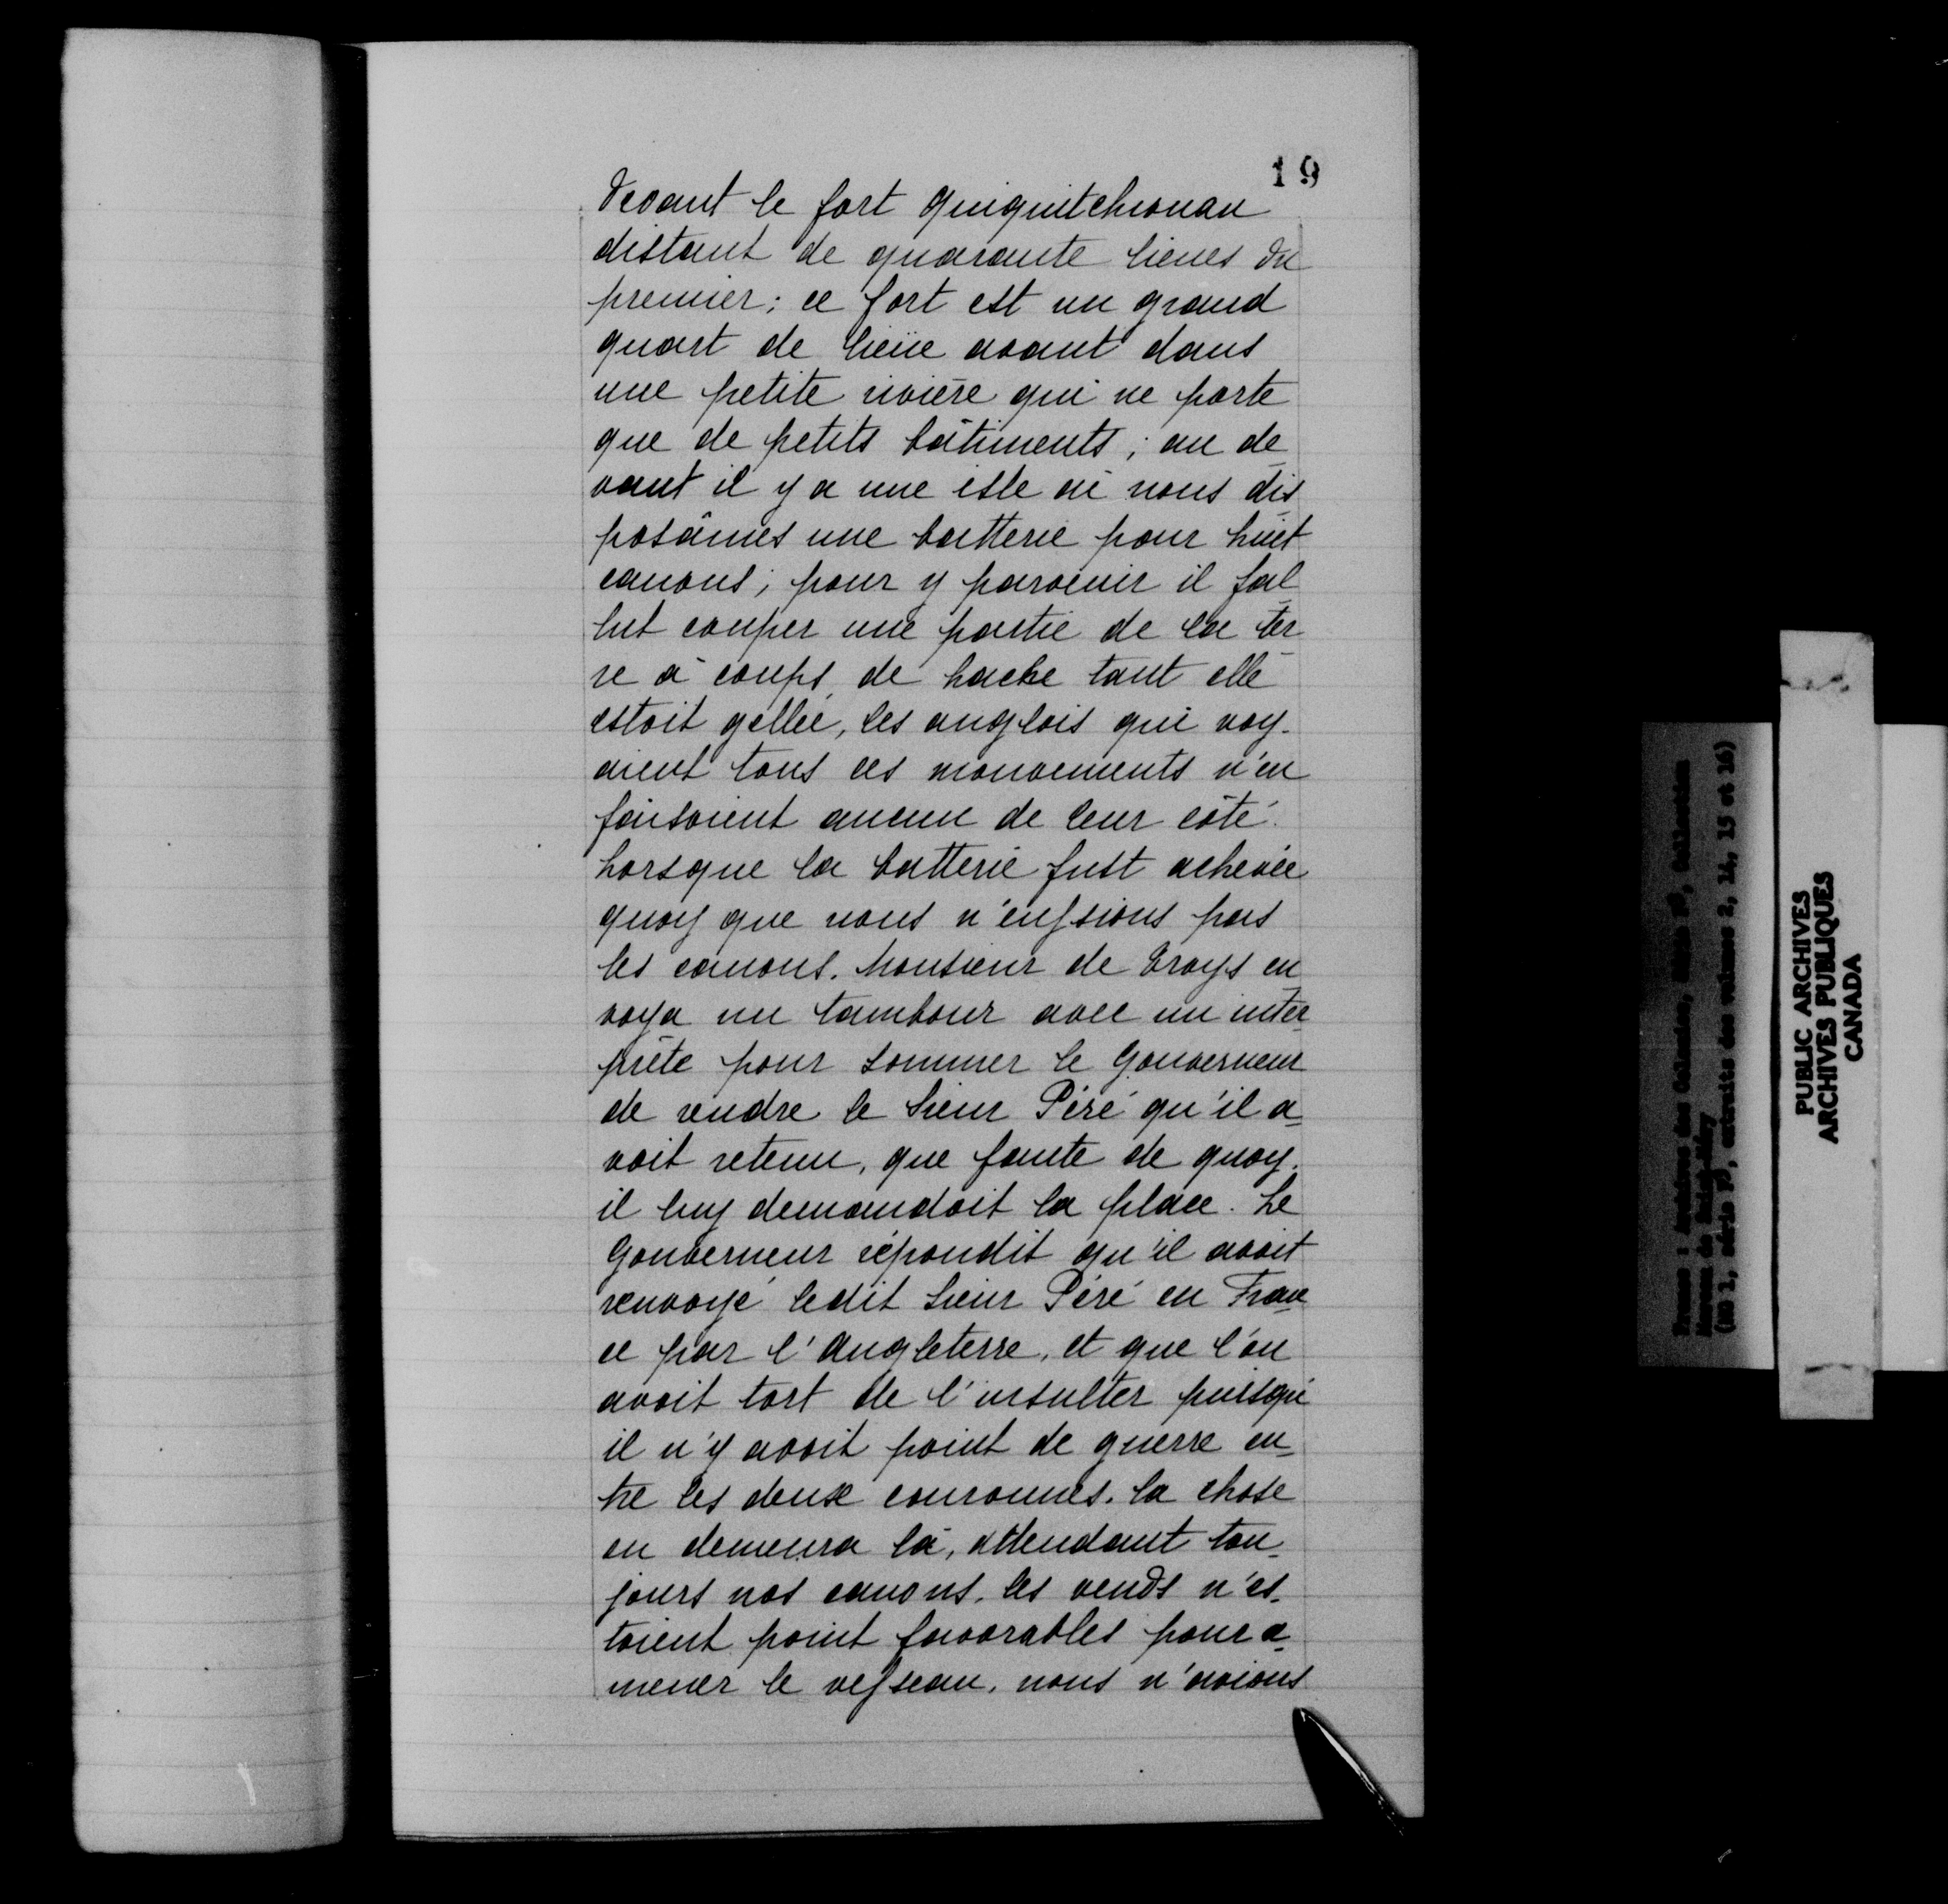 19
devant le fort Quiquitchouan
distant de quarante lieues du
premier; ce fort est un grand
quart de lieüe avant dans
une petite rivière qui ne porte
que de petits bâtiments; au de
vant il y a une isle où nous dis
posâmes une batterie pour huit
canons; pour y parvenir il fal
lut couper une partie de la ter
re à coups de hache tant elle
estoit gellée, les anglois qui voy-
aient tous ces mouvements n'en
faisoient aucun de leur côté.
Lorsque la batterie fust achevée
quoy que nous n'eussions pas
les canons. Monsieur de Troys en
voya un tambour avec un inter
prète pour sommer le Gouverneur
de rendre le Sieur Péré qu'il a
voit retenu, que faute de quoy.
il luy demandoit la place. Le
Gouverneur répondit qu'il avoit
renvoyé ledit Sieur Péré en Fran
ce par l'Angleterre, et que l'on
avoit tort de l'insulter puisqu'
il n'y avoit point de guerre en
tre les deux couronnes. la chose
en demeura là, attendant tou-
jours nos canons. les vends n'es-
toient point favorables pour a
mener le vesseau, nous n'avions
PUBLIC ARCHIVES
ARCHIVES PUBLIQUES
CANADA
France : Archives des Colonies,
(MG 1, série, extraits des volumes 2, 14, 15 et 16)